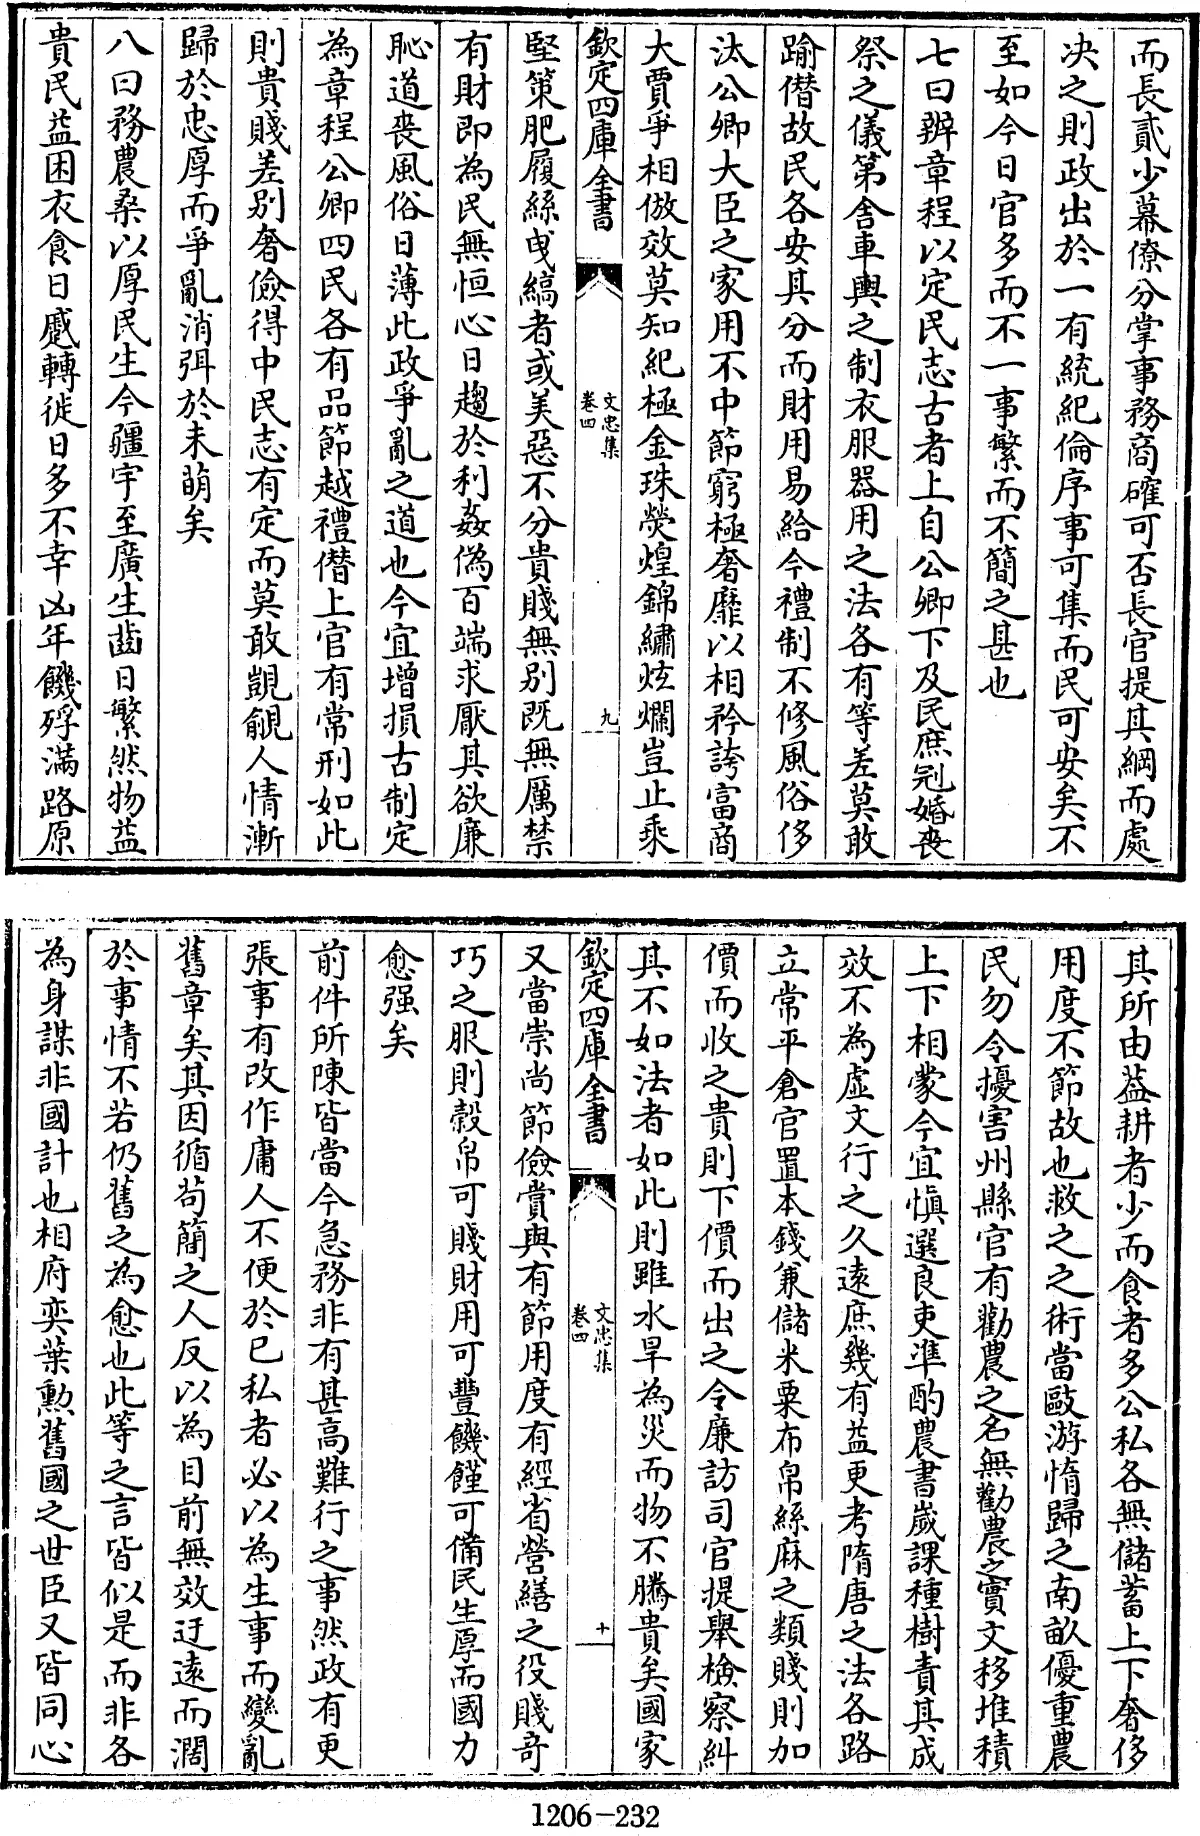 而長貳少幕僚分掌事務商確可否長官提其綱而處
决之則政出於一有統紀倫序事可集而民可安矣不
至如今日官多而不一事繁而不簡之甚也
七曰辨章程以定民志古者上自公卿下及民庶冠婚喪
祭之儀第舍車輿之制衣服器用之法各有等差莫敢
踰僭故民各安其分而財用易給今禮制不修風俗侈
汰公卿大臣之家用不中節窮極奢靡以相矜誇富商
大賈爭相倣效莫知紀極金珠熒煌錦繡炫爛豈止乘
欽定四庫全書
文忠集
卷四
九
堅策肥履絲曳縞者或美惡不分貴賤無别既無厲禁
有財即為民無恒心日趨於利姦偽百端求厭其欲廉
恥道喪風俗日薄此政爭亂之道也今宜增損古制定
為章程公卿四民各有品節越禮僭上官有常刑如此
則貴賤差别奢儉得中民志有定而莫敢覬覦人情漸
歸於忠厚而爭亂消弭於未萌矣
八曰務農桑以厚民生今疆宇至廣生齒日繁然物益
貴民益困衣食日蹙轉徙日多不幸凶年饑殍滿路原
其所由葢耕者少而食者多公私各無儲蓄上下奢侈
用度不節故也救之之術當敺游惰歸之南畝優重農
民勿令擾害州縣官有勸農之名無勸農之實文移堆積
上下相蒙今宜慎選良吏準酌農書歲課種樹責其成
效不為虛文行之久遠庶幾有益更考隋唐之法各路
立常平倉官置本錢兼儲米粟布帛絲麻之類賤則加
價而收之貴則下價而出之令廉訪司官提舉檢察糾
其不如法者如此則雖水旱為災而物不騰貴矣國家
欽定四庫全書
文忠集
卷四
十
又當崇尚節儉賞與有節用度有經省營繕之役賤奇
巧之服則穀帛可賤財用可豐饑饉可備民生厚而國力
愈强矣
前件所陳皆當今急務非有甚高難行之事然政有更
張事有改作庸人不便於已私者必以為生事而變亂
舊章矣其因循苟簡之人反以為目前無效迂遠而濶
於事情不若仍舊之為愈也此等之言皆似是而非各
為身謀非國計也相府奕葉勲舊國之世臣又皆同心
1206-232